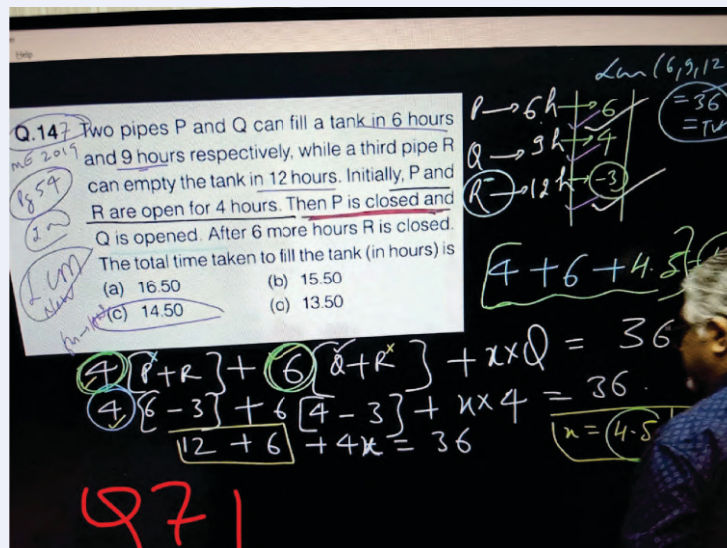 Help
Q.147 Two pipes P and Q can fill a tank in 6 hours
and 9 hours respectively, while a third pipe R
can empty the tank in 12 hours. Initially, P and
R are open for 4 hours. Then P is closed and
Q is opened. After 6 more hours R is closed.
The total time taken to fill the tank (in hours) is
(a) 16.50 (b) 15.50
(c) 14.50 (c) 13.50
ME 2019
Pg 54
2m
LCM
Lcm (6,9,12
= 36
= TW
P → 6h → 6
Q → 9h → 4
R → 12h → -3
4 + 6 + 4.5
4 [P+R] + 6 [Q+R] + x×Q = 36
4 [6-3] + 6 [4-3] + x×4 = 36.
12 + 6 + 4x = 36
x = 4.5
Q71